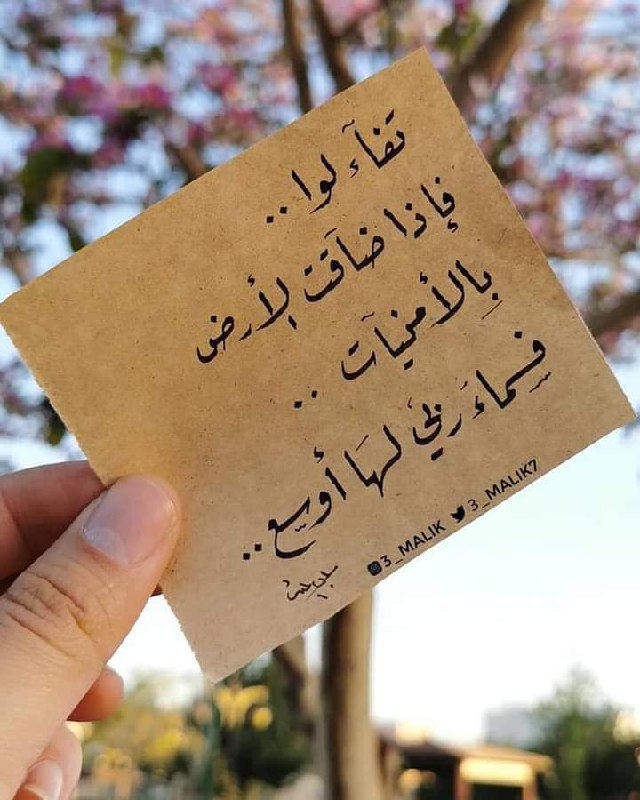 تَفاَءلوا..
فإذا ضاَقَت الأرض
بِالأمنيَات ..
فَسماءَ ربّي لهَا أوسع..
3_MALIK 3_MALIK7